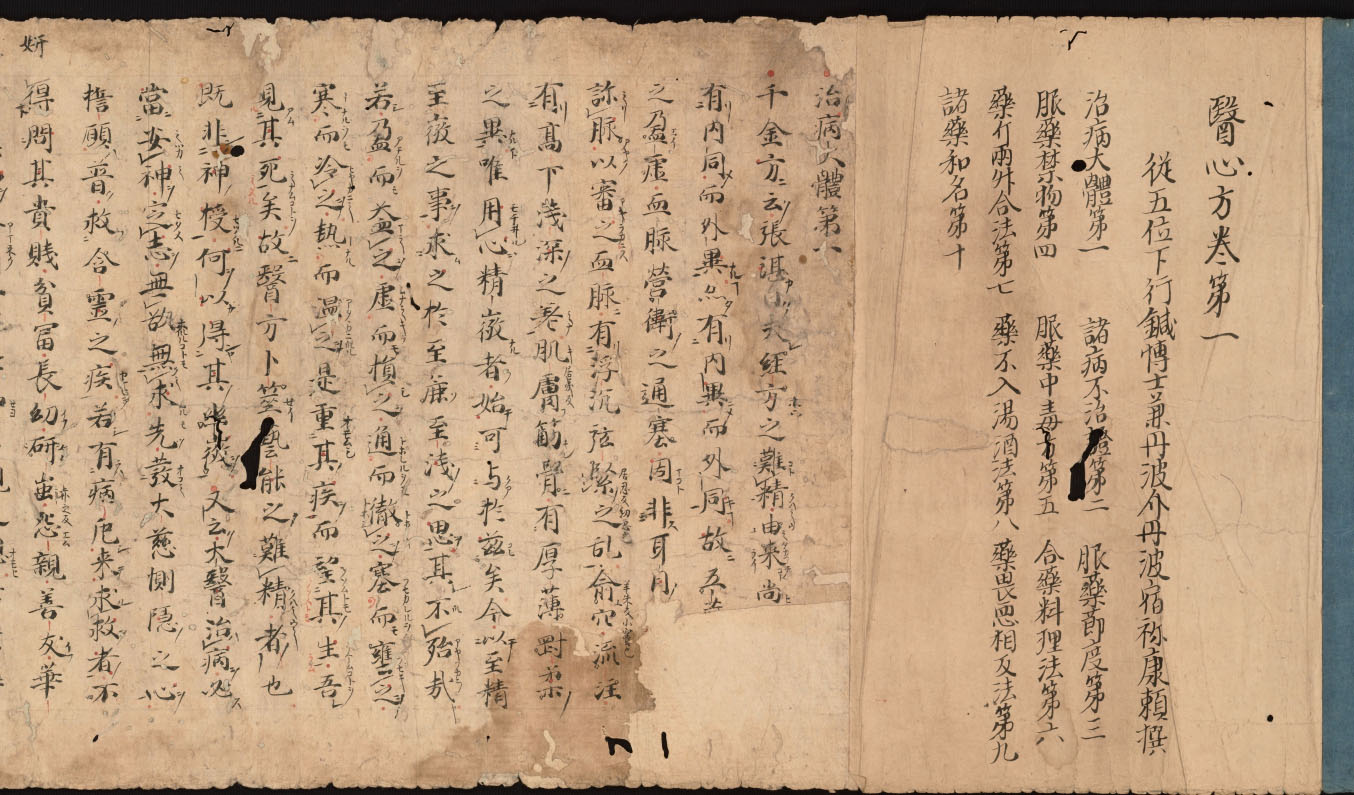 醫心方卷第一
從五位下行鍼博士兼丹波介丹波宿祢康頼撰
治病大體第一 諸病不治證第二 服藥節度第三
服藥禁物第四 服藥中毒方第五 合藥料理法第六
藥斤兩升合法第七 藥不入湯酒法第八 藥畏惡相反法第九
諸藥和名第十
治病大體第一
千金方云張湛曰夫經方之難精由來尚
有内同而外異亦有内異而外同故五
之盈虛血脉營衛之通塞固非耳目
診脉以審之血脉有浮沉弦緊之乱俞穴流注
有髙下淺深之差肌膚筋骨有厚薄對柔
之異唯用心精微者始可与於玆矣今以至精
至微之事求之於至麁至淺之思其不殆哉
若盈而益之虛而損之通而徹之塞而壅之
寒而冷之熱而温之是重其疾而望其生吾
見其死矣故醫方卜筮藝能之難精者也
既非神授何以得其幽微 又云大醫治病必
當安神定志無欲無求先發大慈惻隱之心
誓願普救含靈之疾若有病厄来求救者不
得問其貴賤貧冨長幼研蚩怨親善友華
妍